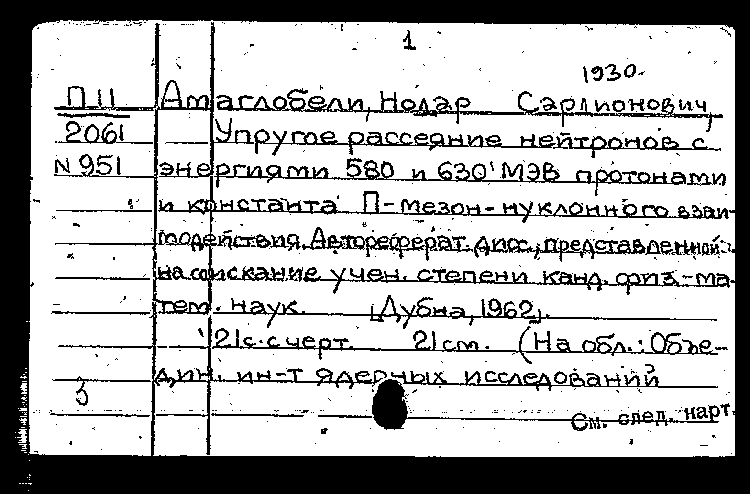 1
1930.
П11 Амаглобели, Нодар Сарпионович,
2061 Упругое рассеяние нейтронов с
N 951 энергиями 580 и 630 МЭВ протонами
и константа П-мезон-нуклонного взаи-
модействия. Автореферат дисс., представленной
на соискание учен. степени канд. физ.-ма-
тем. наук. [Дубна, 1962].
21с. с черт. 21см. (На обл.: Объе-
дин. ин-т ядерных исследований
3
См. след. карт.